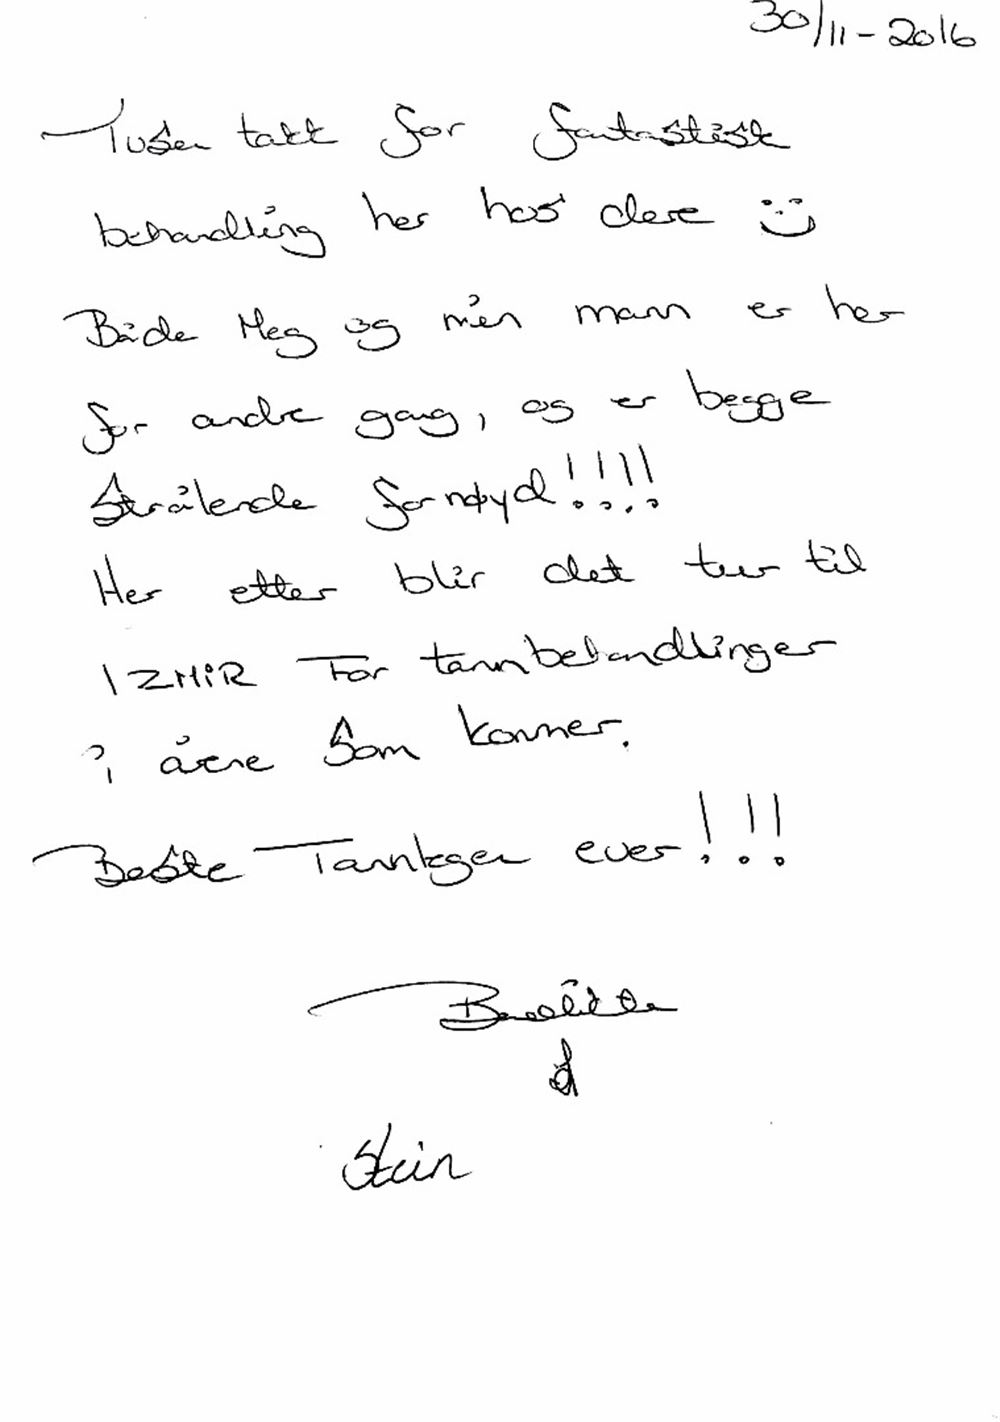 30/11-2016
Tusen takk for fantastisk
behandling her hos dere
Både Meg og min mann er her
for andre gang, og er begge
Strålende fornøyd!!!!
Her etter blir det tur til
IZMIR For tannbehandlinger
i årene som kommer.
Beste Tannlegen ever!!!
Stein